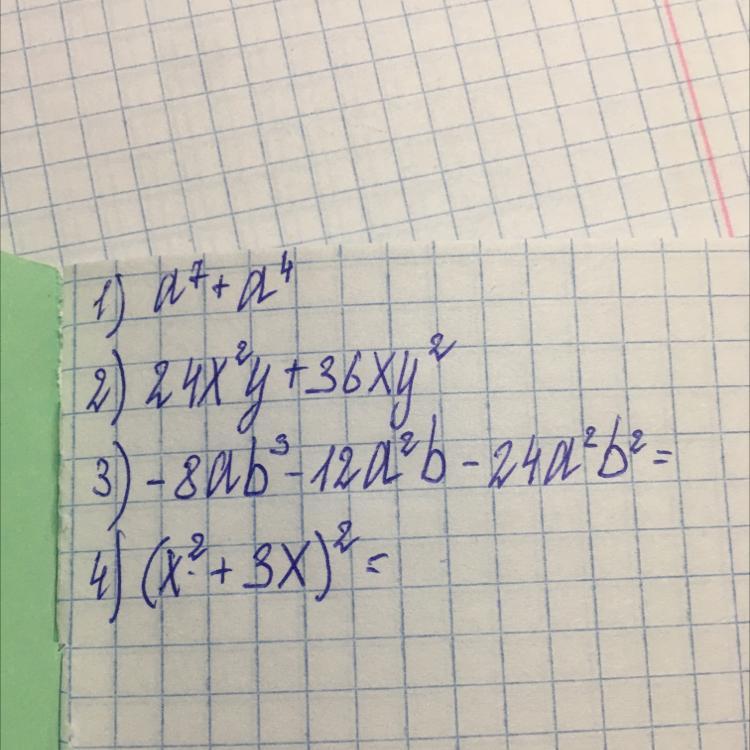 1) a⁷ + a⁴
2) 24x²y + 36xy²
3) - 8ab³ - 12a²b - 24a²b² =
4) (x² + 3x)² =